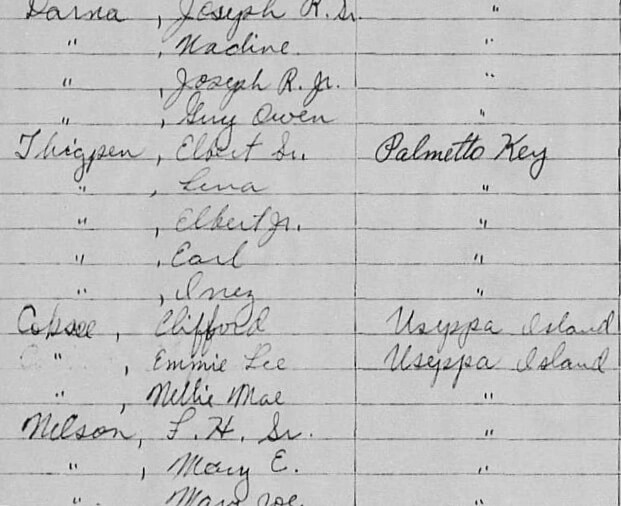 Darna , Joseph R. Sr. "
" , Nadine. "
" , Joseph R. Jr. "
" , Guy Owen "
Thigpen , Elbert Sr. Palmetto Key
" , Lena "
" , Elbert Jr. "
" , Earl "
" , Inez "
, Clifford Useppa Island
" , Emmie Lee Useppa Island
" , Nellie Mae "
Nelson , F. H. Sr. "
" , Mary E. "
" Mary "